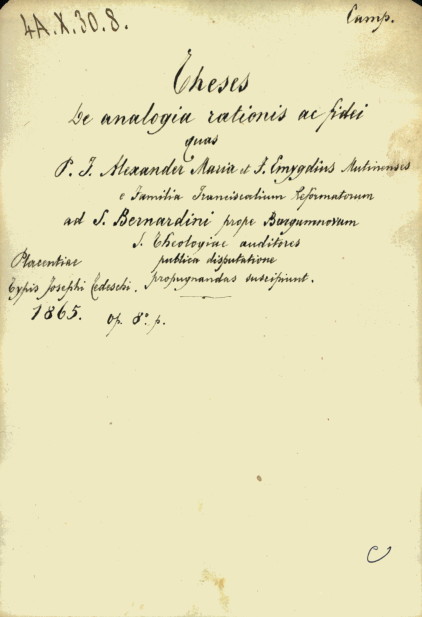 4A.X.30.8.
Camp.
Theses
De analogia rationis ac fidei
quas
P. F. Alexander Maria et F. Emygdius Mutinenses
e Familia Franciscalium Reformatorum
ad S. Bernardini prope Burgumnovum
S. Theologiae auditores
publica disputatione
propugnandas suscipiunt.
Placentiae
Typis Josephi Tedeschi.
1865. op. 8º p.
C